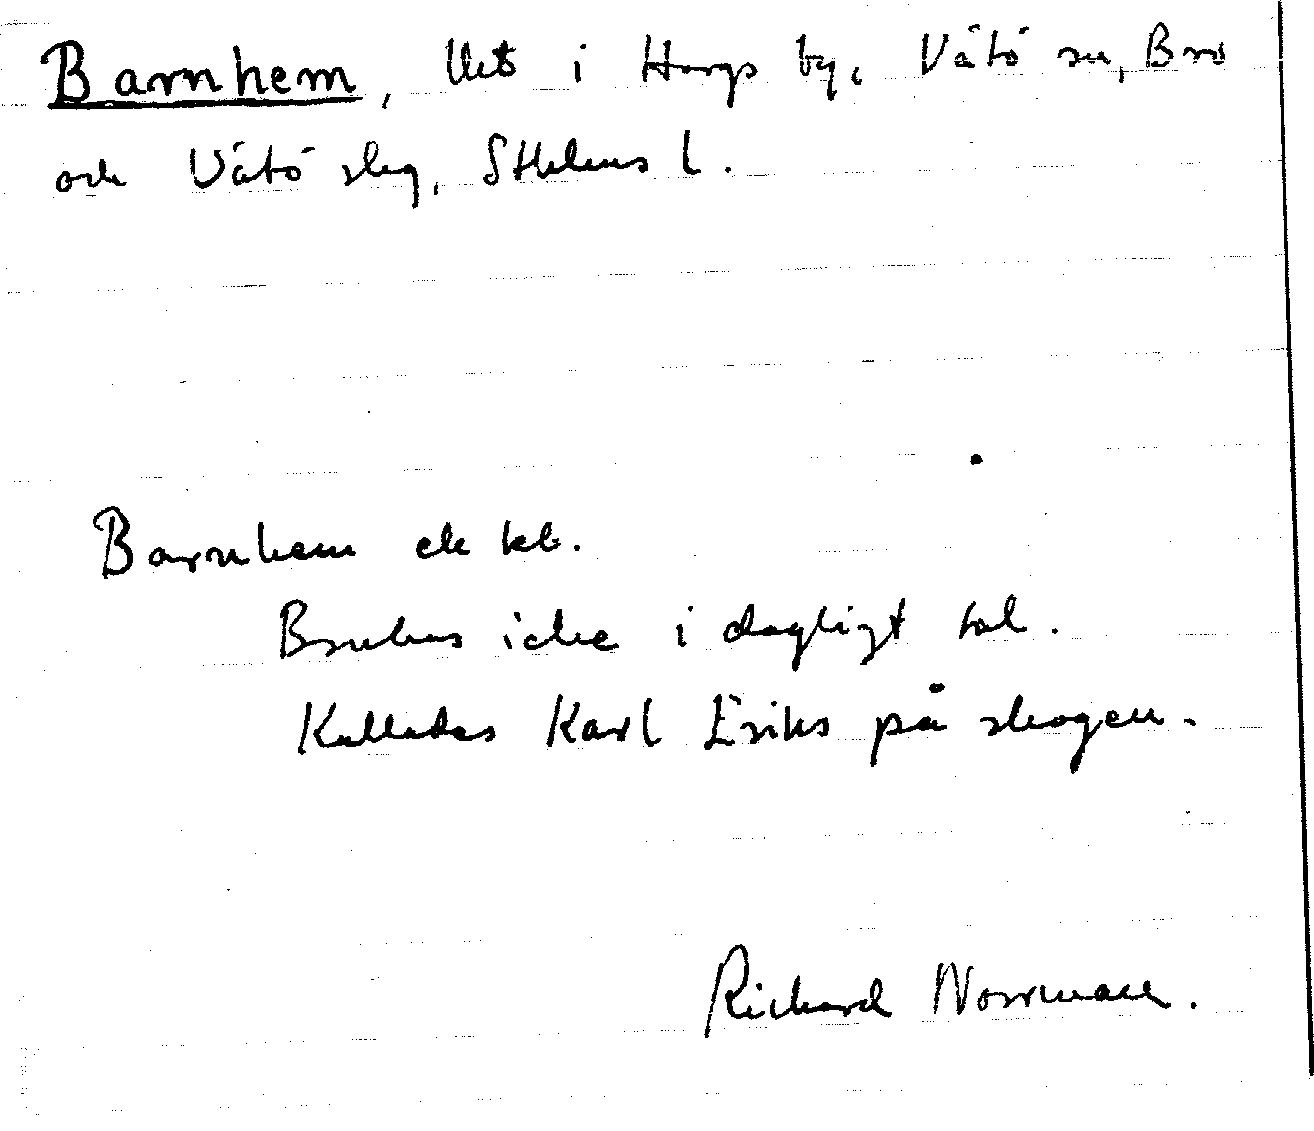 Barnhem, i Hargs by, Vätö sn, Bro
och Vätö skg, Sthlms l.
Barnhem ek kb.
Brukas icke i dagligt tal.
Kallades Karl Eriks på skogen.
Richard Norrman.